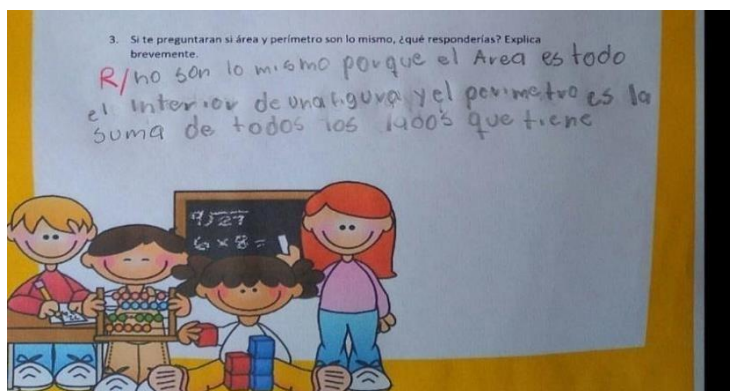 3. Si te preguntaran si área y perímetro son lo mismo, ¿qué responderías? Explica
brevemente.
R/ no son lo mismo porque el Area es todo
el interior de una figura y el perimetro es la
suma de todos los lados que tiene
9)27
6 × 8 =